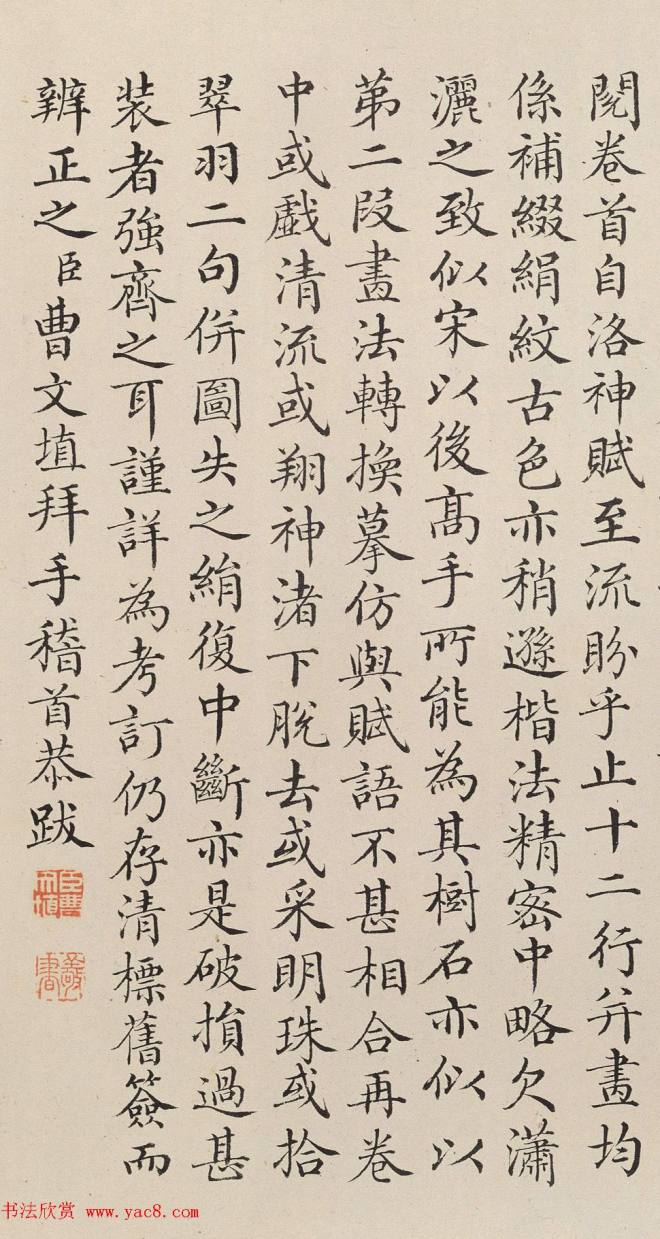 閱卷首自洛神賦至流盼乎止十二行并畫均
係補綴絹紋古色亦稍遜楷法精密中略欠瀟
灑之致似宋以後高手所能為其樹石亦似以
第二段畫法轉換摹仿與賦語不甚相合再卷
中或戲清流或翔神渚下脫去或采明珠或拾
翠羽二句併圖失之絹復中斷亦是破損過甚
裝者強齊之耳謹詳為考訂仍存清標舊簽而
辨正之臣曹文埴拜手稽首恭跋
臣曹文埴
敬書
书法欣赏 www.yac8.com